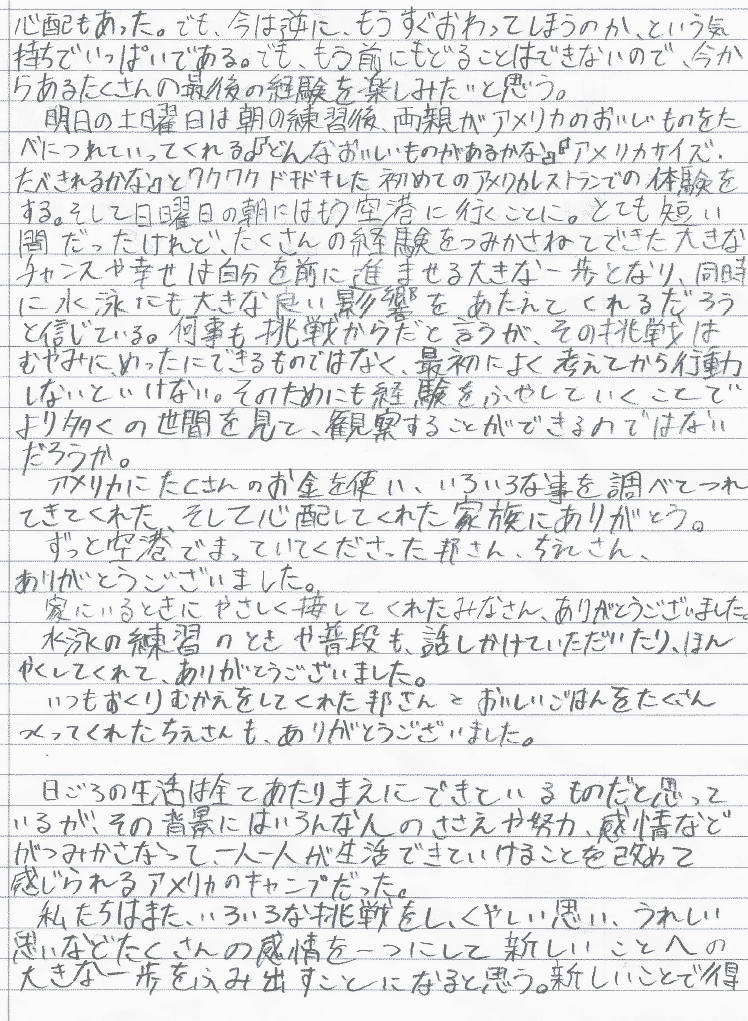 心配もあった。でも、今は逆に、もうすぐおわってしまうのか、という気
持ちでいっぱいである。でも、もう前にもどることはできないので、今か
らあるたくさんの最後の経験を楽しみたいと思う。
明日の土曜日は朝の練習後、両親がアメリカのおいしいものをた
べにつれていってくれる。『どんなおいしいものがあるかな』『アメリカサイズ.
たべきれるかな』とワクワクドキドキした初めてのアメリカレストランでの体験を
する。そして日曜日の朝にはもう空港に行くことに。とても短い
間だったけれど、たくさんの経験をつみかさねてできた大きな
チャンスや幸せは自分を前に進ませる大きな一歩となり、同時
に水泳にも大きな良い影響をあたえてくれるだろう
と信じている。何事も挑戦からだと言うが、その挑戦は
むやみに、めったにできるものではなく、最初によく考えてから行動
しないといけない。そのためにも経験をふやしていくことで
より多くの世間を見て、観察することができるのではない
だろうか。
アメリカにたくさんのお金を使い、いろいろな事を調べてつれ
てきてくれた、そして心配してくれた家族にありがとう。
ずっと空港でまっていてくださった邦さん、ちえさん、
ありがとうございました。
家にいるときにやさしく接してくれたみなさん、ありがとうございました。
水泳の練習のときや普段も、話しかけていただいたり、ほん
やくしてくれて、ありがとうございました。
いつもおくりむかえをしてくれた邦さんとおいしいごはんをたくさん
つくってくれたちえさんも、ありがとうございました。
日ごろの生活は全てあたりまえにできているものだと思って
いるが、その背景にはいろんな人のささえや努力、感情など
がつみかさなって、一人一人が生活できていけることを改めて
感じられるアメリカのキャンプだった。
私たちはまた、いろいろな挑戦をし、くやしい思い、うれしい
思いなどたくさんの感情を一つにして新しいことへの
大きな一歩をふみ出すことになると思う。新しいことで得